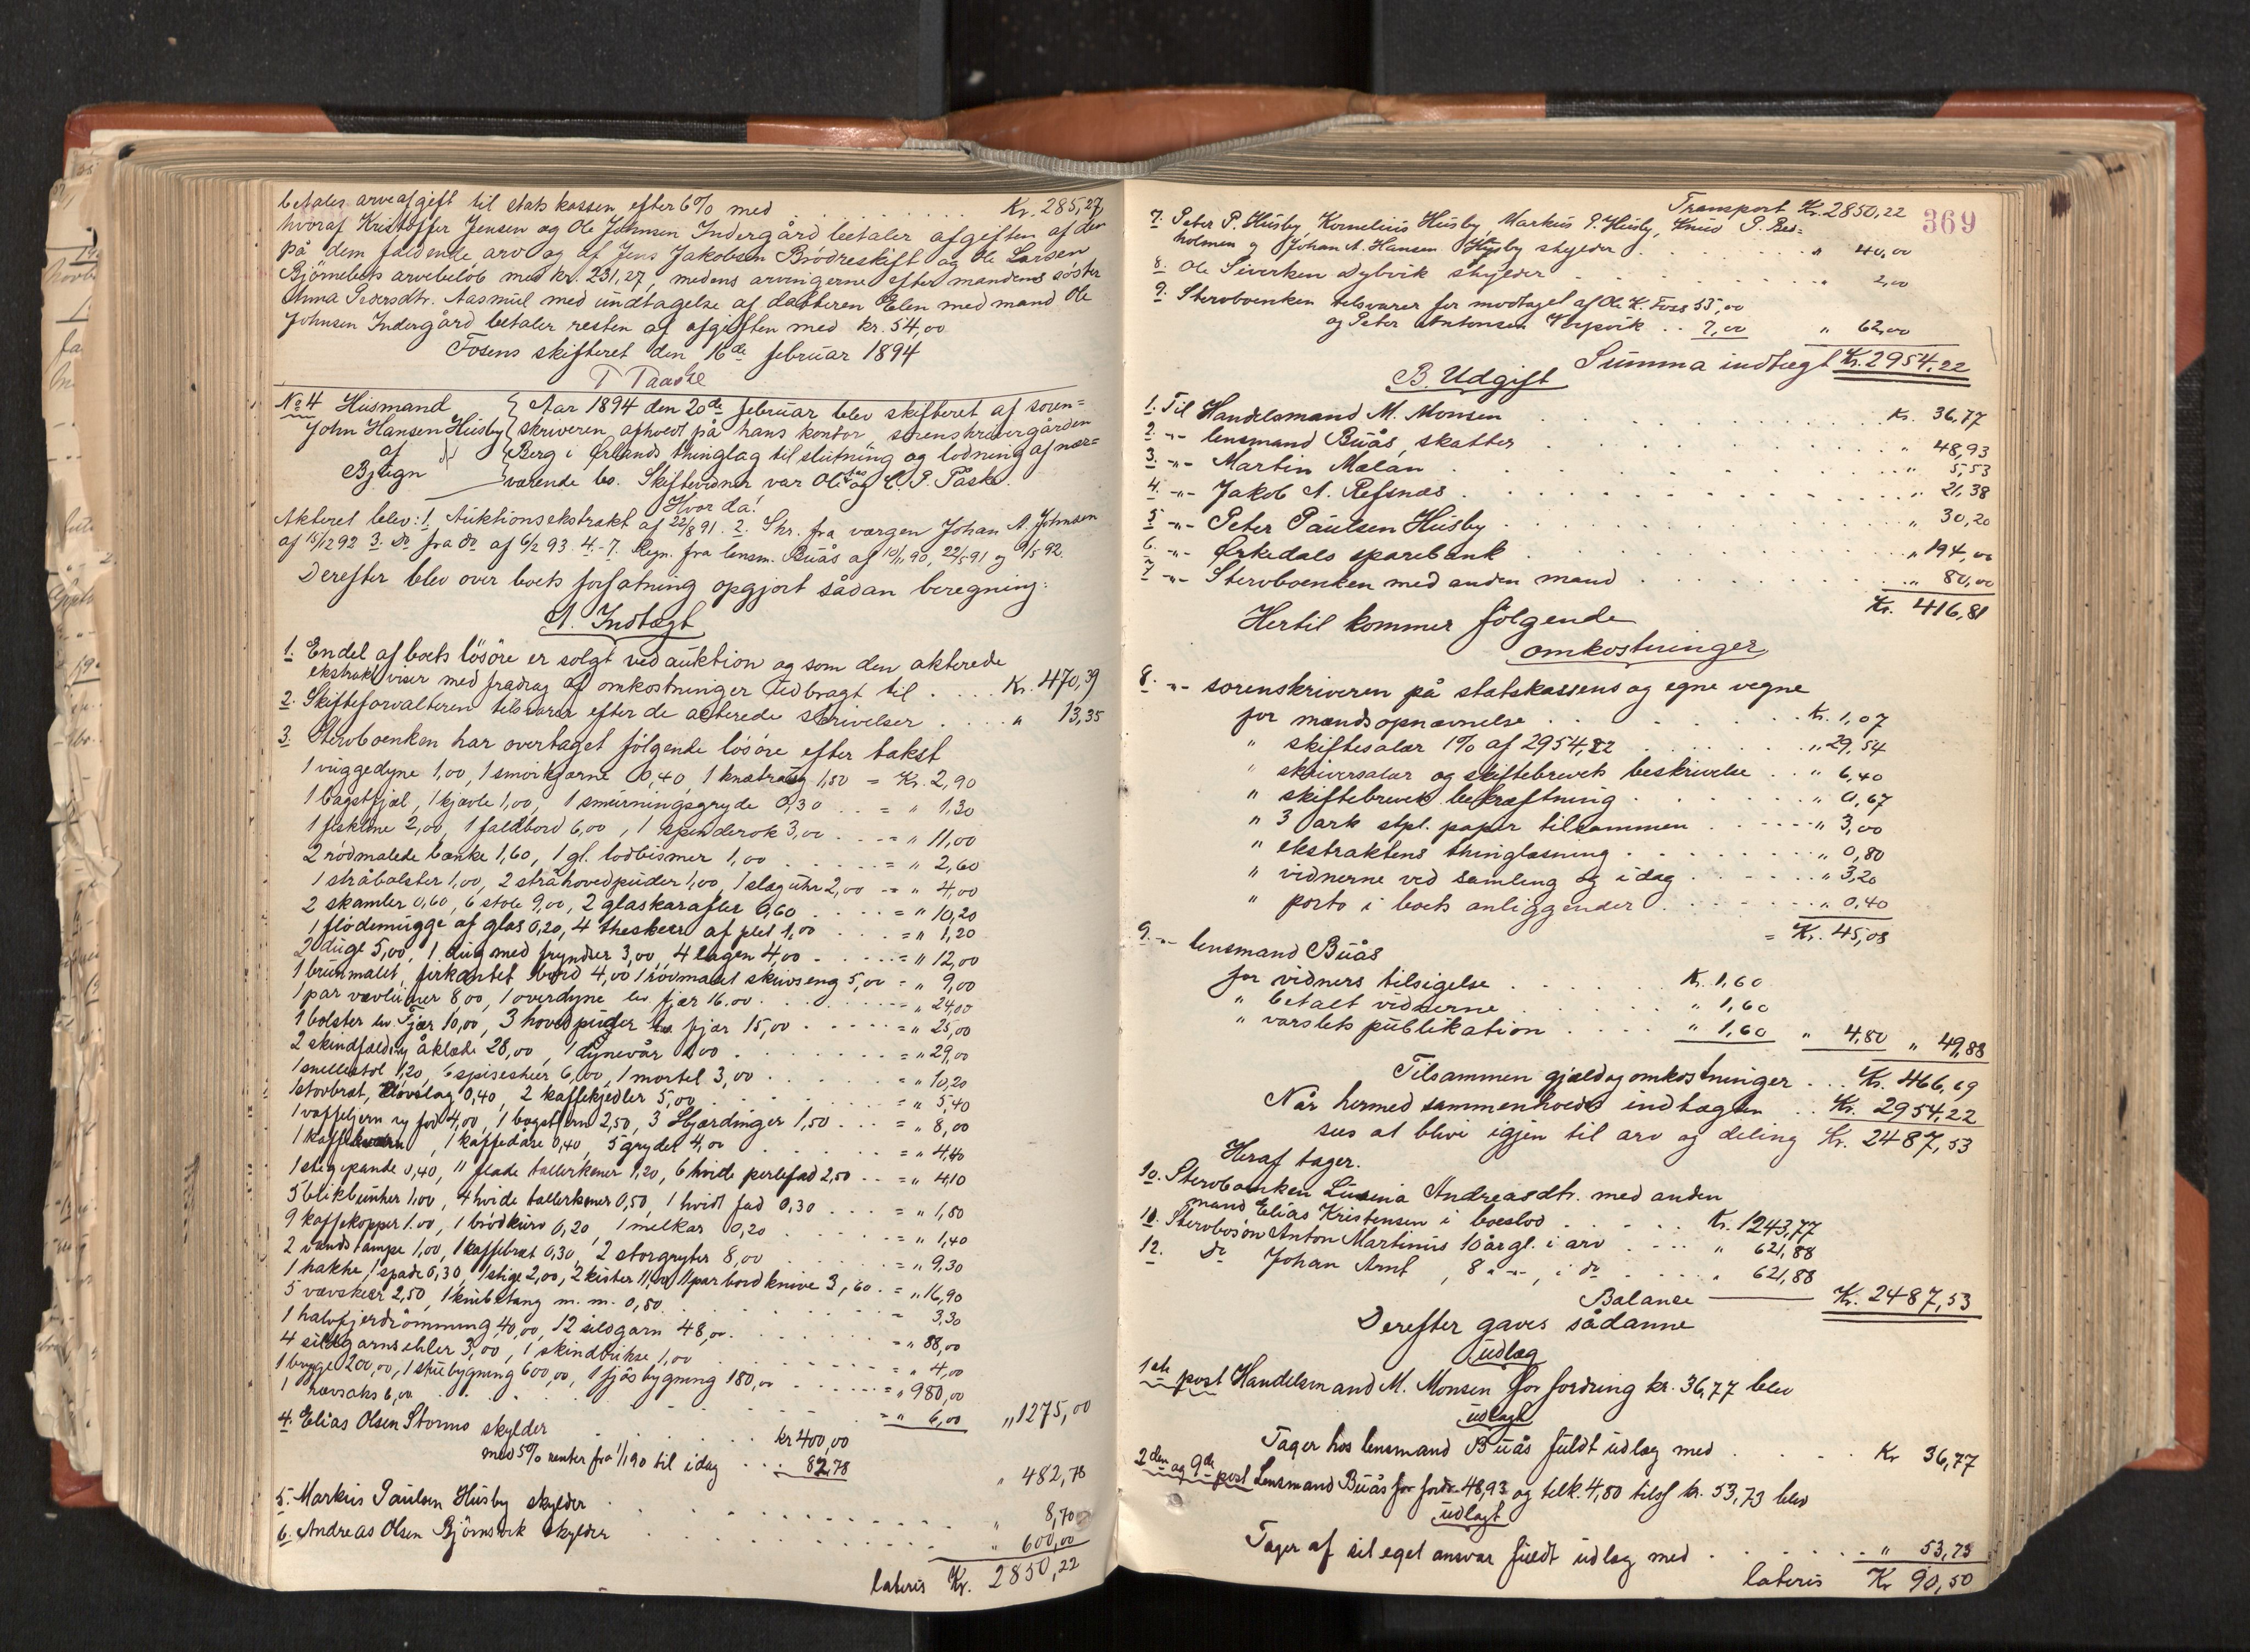 betales arveafgift til statskassen efter 6% med . . . . . . . . Kr. 285,27
hvoraf Kristoffer Jensen og Ole Johnsen Indergård betaler afgiften af den
på dem faldende arv og af Jens Jakobsen Brödreskift og Ole Larsen
Björnebeks arvebelöb med kr. 231,27, medens arvingerne efter mandens söster
Anna Pedersdtr. Aasmul med undtagelse af datteren Elen med mand Ole
Johnsen Indergård betaler resten af afgiften med kr. 54,00
Fosens skifteret den 16de februar 1894
T Taaske
No 4 Husmand
John Hansen Husby
af
Bjugn
Aar 1894 den 20de februar blev skifteret af soren=
skriveren afholdt på hans kontor, sorenskrivergården
Berg i Ørlands thinglag til slutning og lodning af nær=
værende bo. Skiftevidner var Ole og C. P. Påske.
Hvor da!
Akteret blev: 1. Auktionsekstrakt af 22/8 91. 2. Skr. fra værgen Johan A. Johnsen
af 15/12 92 3. Do fra do af 6/2 93. 4.-7. Regn. fra lensm. Buås af 10/11 90, 22/5 91 og 9/5 92.
Derefter blev over boets forfatning opgjort sådan beregning:
A. Indtægt
1. Endel af boets lösöre er solgt ved auktion og som den akterede
ekstrakt viser med fradrag af omkostninger udbragt til . . . . Kr. 470,39
2. Skifteforvalteren tilsvarer efter de akterede skrivelser . . . . " 13,35
3. Stervboenken har overtaget fölgende lösöre efter takst
1 vuggedyne 1,00, 1 smörkjærne 0,40, 1 knætraug 1,50 = Kr. 2,90
1 bagstfjæl, 1 kjævle 1,00, 1 smurningsgryde 0,30 . . = " 1,30
1 fiskeline 2,00, 1 faldbord 6,00, 1 spinderok 3,00 . . = " 11,00
2 rödmalede bænke 1,60, 1 gl. lodbismer 1,00 . . . . = " 2,60
1 stråbolster 1,00, 2 stråhovedpuder 1,00, 1 slaguhr 2,00 = " 4,00
2 skamler 0,60, 6 stole 9,00, 2 glaskarafler 0,60 . . . = " 10,20
1 flödemugge af glas 0,20, 4 theskeer af plet 1,00 . . . = " 1,20
2 duge 5,00, 1 dug med frynser 3,00, 4 lagen 4,00 . . . = " 12,00
1 brunmalet, firkantet bord 4,00 1 rödmalet skivseng 5,00 = " 9,00
1 par vævlunner 8,00, 1 overdyne lev fjær 16,00 . . . . = " 24,00
1 bolster lev fjær 10,00, 3 hovedpuder lev fjær 15,00 . . . = " 25,00
2 skindfæld og åklæde 28,00, 1 dynevår 1,00 . . . . = " 29,00
1 snellestol 1,20, 6 spiseskeer 6,00, 1 mortel 3,00 . . . . = " 10,20
1 stovbræt, 0,40, 2 kaffekjedler 5,00 . . . . = " 5,40
1 vaffeljern og fod 4,00, 1 bagstjern 2,50, 3 Hjærdinger 1,50 . . . = " 8,00
1 kaffekværn, 1 kaffedåse 0,40, 5 gryder 4,00 . . . . = " 4,40
1 stegepande 0,40, 11 flade tallerkener 1,20, 6 hvide perlefad 2,50 . . = " 4,10
5 blikbunker 1,00, 4 hvide tallerkener 0,50, 1 hvidt fad 0,30 . . . = " 1,80
9 kaffekopper 1,00, 1 brödkurv 0,20, 1 melkar 0,20 . . . . = " 1,40
2 vandstampe 1,00, 1 kaffebræt 0,30, 2 storgryter 8,00 . . . . = " 9,30
1 hakke, 1 spade 0,30, 1 stige 2,00, 2 kister 11,00 1 par bordknive 3,60 . = " 16,90
5 vævskeer 2,50, 1 knibetang m. m. 0,80 . . . . = 3,30
1 halvfjerdrömming 40,00, 12 sildgarn 48,00 . . . . = " 88,00
4 sildgarnsehler 3,00, 1 skindbukse 1,00 . . . . = " 4,00
1 brygge 200,00, 1 stuebygning 600,00, 1 fjösbygning 180,00 . . . . = " 980,00
1 rævsaks 6,00 . . . . = " 6,00 " 1275,00
4. Elias Olsen Stormo skylder . . . . kr 400,00
med 5% renter fra 1/1 90 til idag . . . 82,78 " 482,78
5. Markus Paulsen Husby skylder . . . . " 8,70
6. Andreas Olsen Björnsvik skylder . . . . " 600,00
lateris Kr. 2850,22
Transport Kr. 2850,22
369
7. Peter P. Husby, Kornelius Husby, Markus P. Husby, Knud P. Bes=
holmen og Johan A. Hansen Husby skylder . . . . " 40,00
8. Ole Siverken Dybvik skylder . . . . " 2,00
9. Stervboenken tilsvarer for modtaget af Ole K. Foss 55,00
og Peter Antonsen Vepsvik . . 7,00 " 62,00
Summa indtægt Kr. 2954,22
B. Udgift
1. Til Handelsmand M. Monsen . . . . Kr. 36,77
2. -"- lensmand Buås, skatter . . . . " 48,93
3. -"- Martin Melan . . . . " 5,53
4. -"- Jakob A. Refsnæs . . . . " 21,38
5 -"- Peter Paulsen Husby . . . . " 30,20
6. -"- Ørkedals sparebank . . . . " 194,00
7 -"- Stervboenken med anden mand . . . . " 80,00
Kr. 416,81
Hertil kommer fölgende
omkostninger
8. -"- sorenskriveren på statskassens og egne vegne
for mandsopnævnelse . . . . Kr. 1,07
" skiftesalær 1% af 2954,22 . . . . " 29,54
" skriversalær og skiftebrevets beskrivelse . . " 6,40
" skiftebrevets bekræftning . . . . " 0,67
" 3 ark stpl. papir tilsammen . . . . " 3,00
" ekstraktens thinglæsning . . . . " 0,80
" vidnerne ved samling og idag . . . . " 3,20
" porto i boets anliggender . . . . " 0,40
= Kr. 45,08
9. -"- lensmand Buås
for vidners tilsigelse . . . . Kr. 1,60
" betalt vidnerne . . . . " 1,60
" varslets publikation . . . . " 1,60 " 4,80 " 49,88
Tilsammen gjæld og omkostninger . . . Kr. 466,69
Når hermed sammenholdes indtægten . . Kr. 2954,22
sees at blive igjen til arv og deling Kr. 2487,53
Heraf tager.
10. Stervboenken Lusina Andreasdtr. med anden
mand Elias Kristensen i boeslod . . . . Kr. 1243,77
11. Stervbosön Anton Martinus 10 år gl. i arv . . . . " 621,88
12. Do Johan Arnt, 8 " -"-, i do . . . . " 621,88
Balance Kr. 2487,53
Derefter gaves sådanne
udlæg
1ste post Handelsmand M. Monsen for fordring kr. 36,77 blev
udlagt
Tager hos lensmand Buås fuldt udlæg med . . . . Kr 36,77
2den og 9de post Lensmand Buås for fordr. 48,93 og tilk. 4,80 tils. kr. 53,73 blev
udlagt
Tager af sit eget ansvar fuldt udlæg med . . . . " 53,73
lateris Kr 90,50